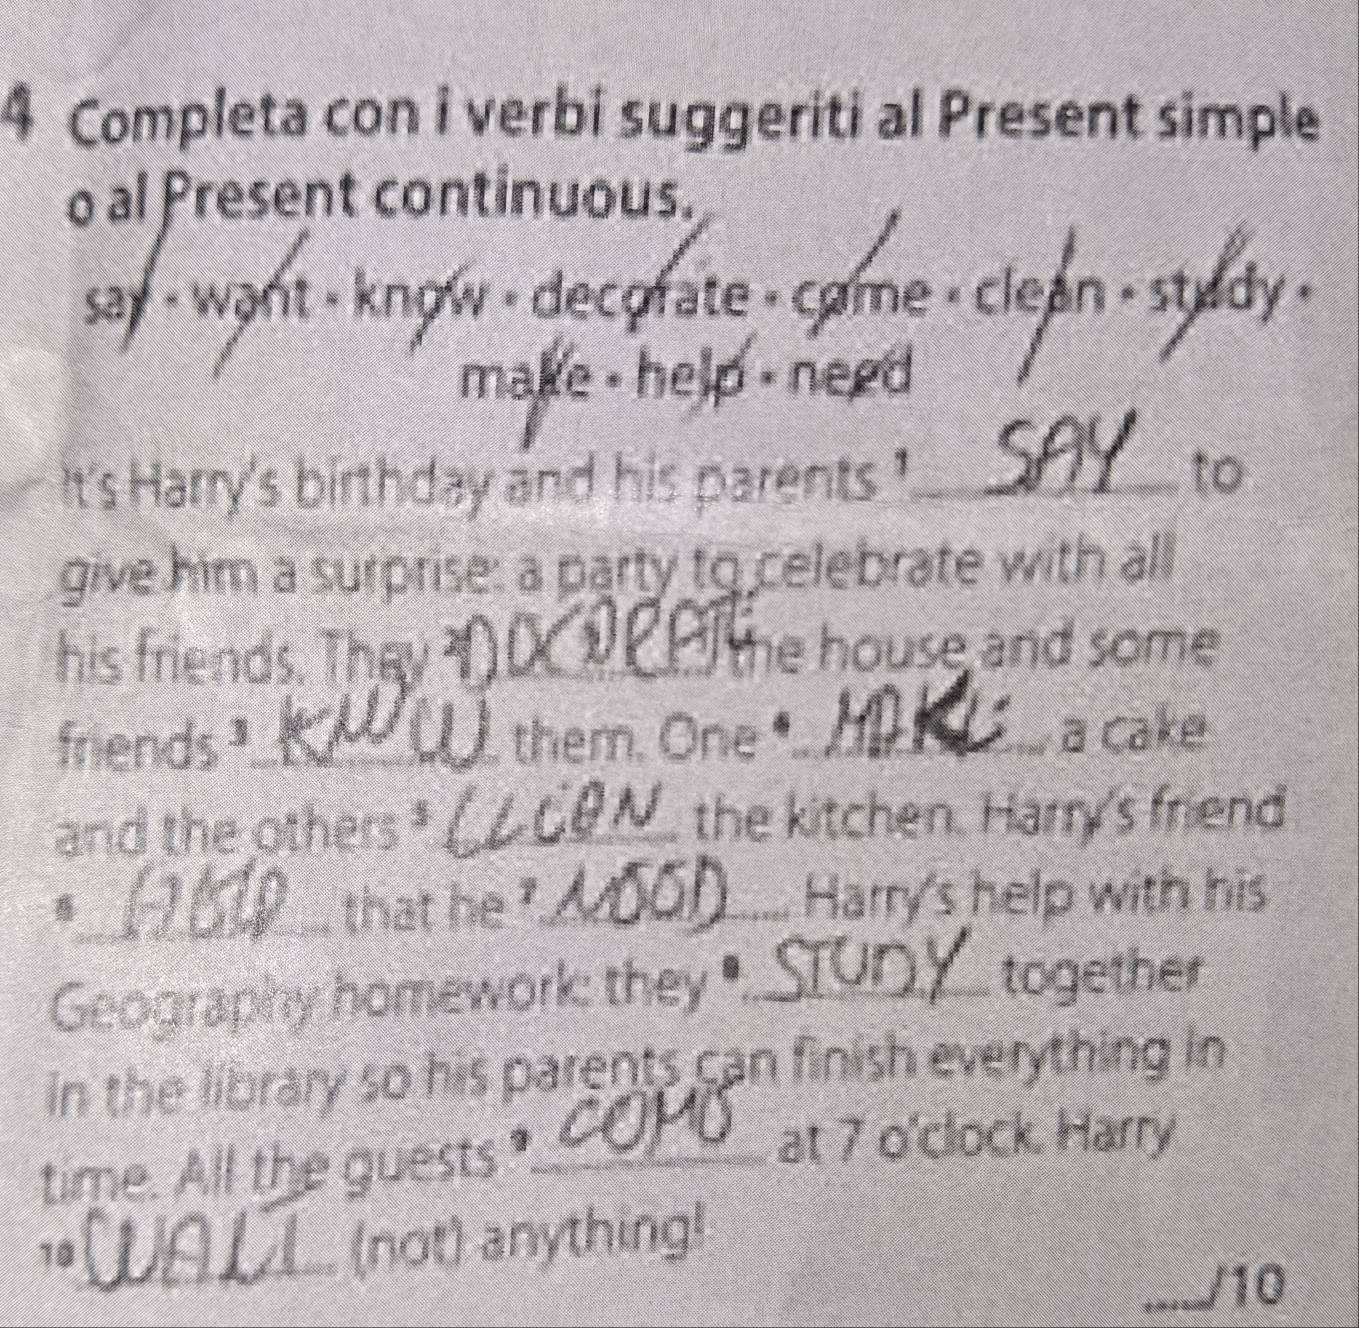 4 Completa con i verbi suggeriti al Present simple
o al Present continuous.
say • want • know • decorate • come • clean • study •
make • help • need
It's Harry's birthday and his parents 1 SAY to
give him a surprise: a party to celebrate with all
his friends. They 2 the house and some
friends 3 KNOW them. One 4 MAKE a cake
and the others 5 CLEAN the kitchen. Harry's friend
6 HELP that he 7 NEED Harry's help with his
Geography homework: they 8 STUDY together
in the library so his parents can finish everything in
time. All the guests 9 COME at 7 o'clock. Harry
10 (not) anything!
/10